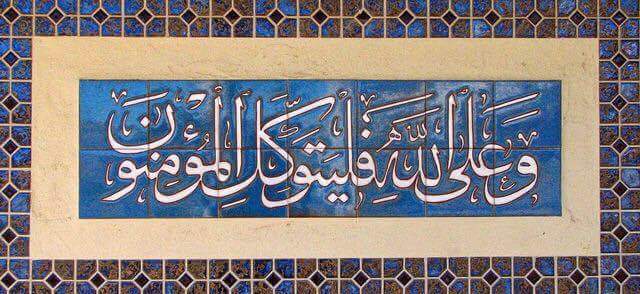 وَعَلَى اللّٰهِ فَلْيَتَوَكَّلِ الْمُؤْمِنُونَ